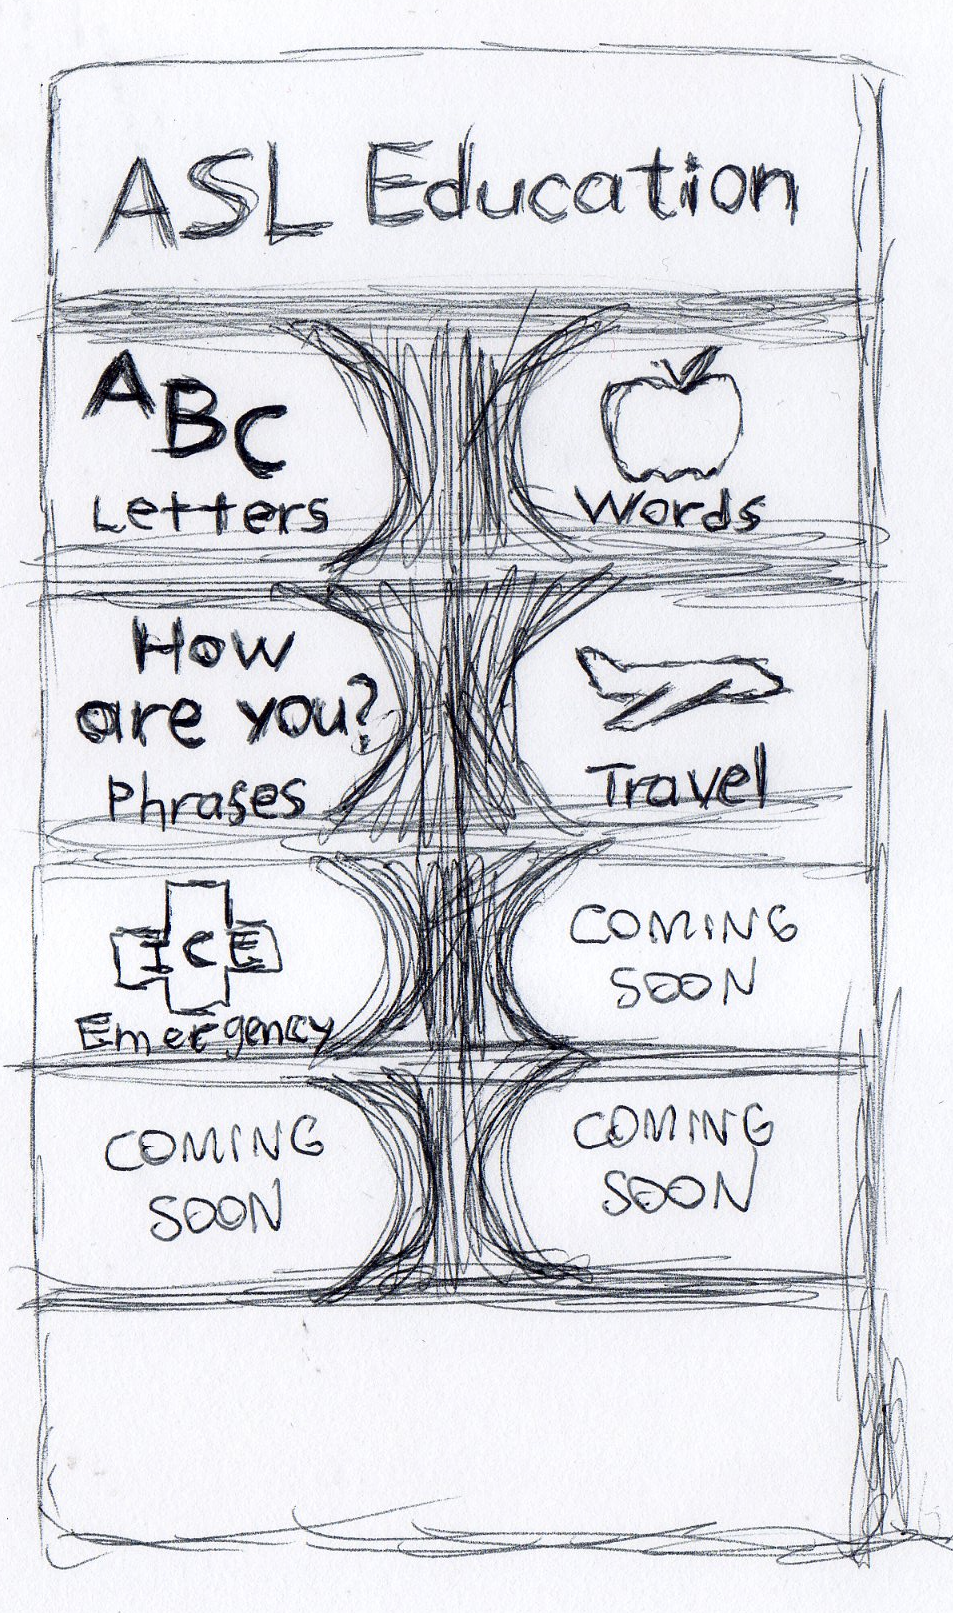 ASL Education
ABC
Letters
Words
How
are you?
Phrases
Travel
ICE
Emergency
COMING
SOON
COMING
SOON
COMING
SOON